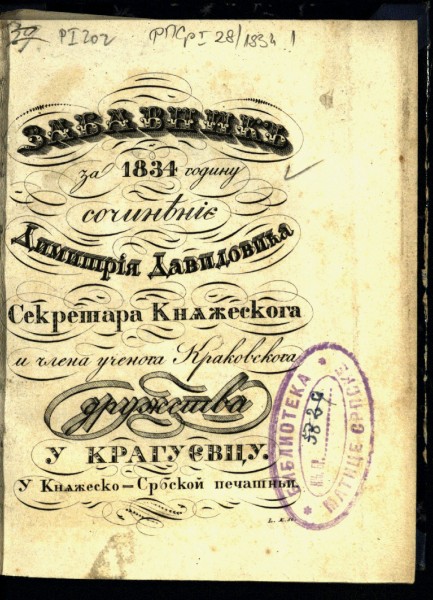 39 РI 202 ФПСр I 28/1834 1
ЗАБАВНИКЪ
за 1834 годину
сочинѣніє
Димитрія Давидовића
Секретара Княжескога
и члена ученога Краковскога
дружства
У КРАГУЄВЦУ.
У Княжеско—Србской печатньи.
БИБЛИОТЕКА
МАТИЦЕ СРПСКЕ